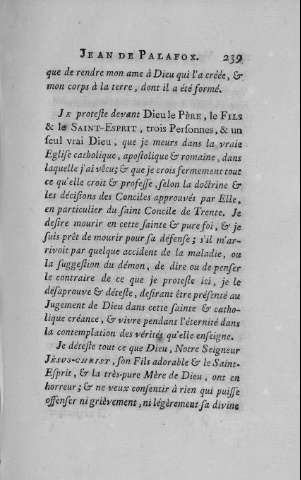 JEAN DE PALAFOX. 239
que de rendre mon ame à Dieu qui l'a créée, &
mon corps à la terre, dont il a été formé.
JE proteste devant Dieu le PÈRE, le FILS
& le SAINT-ESPRIT, trois Personnes, & un
seul vrai Dieu, que je meurs dans la vraie
Eglise catholique, apostolique & romaine, dans
laquelle j'ai vécu; & que je crois fermement tout
ce qu'elle croit & professe, selon la doctrine &
les décisions des Conciles approuvés par Elle,
en particulier du saint Concile de Trente. Je
desire mourir en cette sainte & pure foi, & je
suis prêt de mourir pour sa défense; s'il m'ar-
rivoit par quelque accident de la maladie, ou
la suggestion du démon, de dire ou de penser
le contraire de ce que je proteste ici, je le
desaprouve & déteste, desirant être présenté au
Jugement de Dieu dans cette sainte & catho-
lique créance, & vivre pendant l'éternité dans
la contemplation des vérités qu'elle enseigne.
Je déteste tout ce que Dieu, Notre Seigneur
JESUS-CHRIST, son Fils adorable & le Saint-
Esprit, & la très-pure Mère de Dieu, ont en
horreur; & ne veux consentir à rien qui puisse
offenser ni grièvement, ni légèrement sa divine